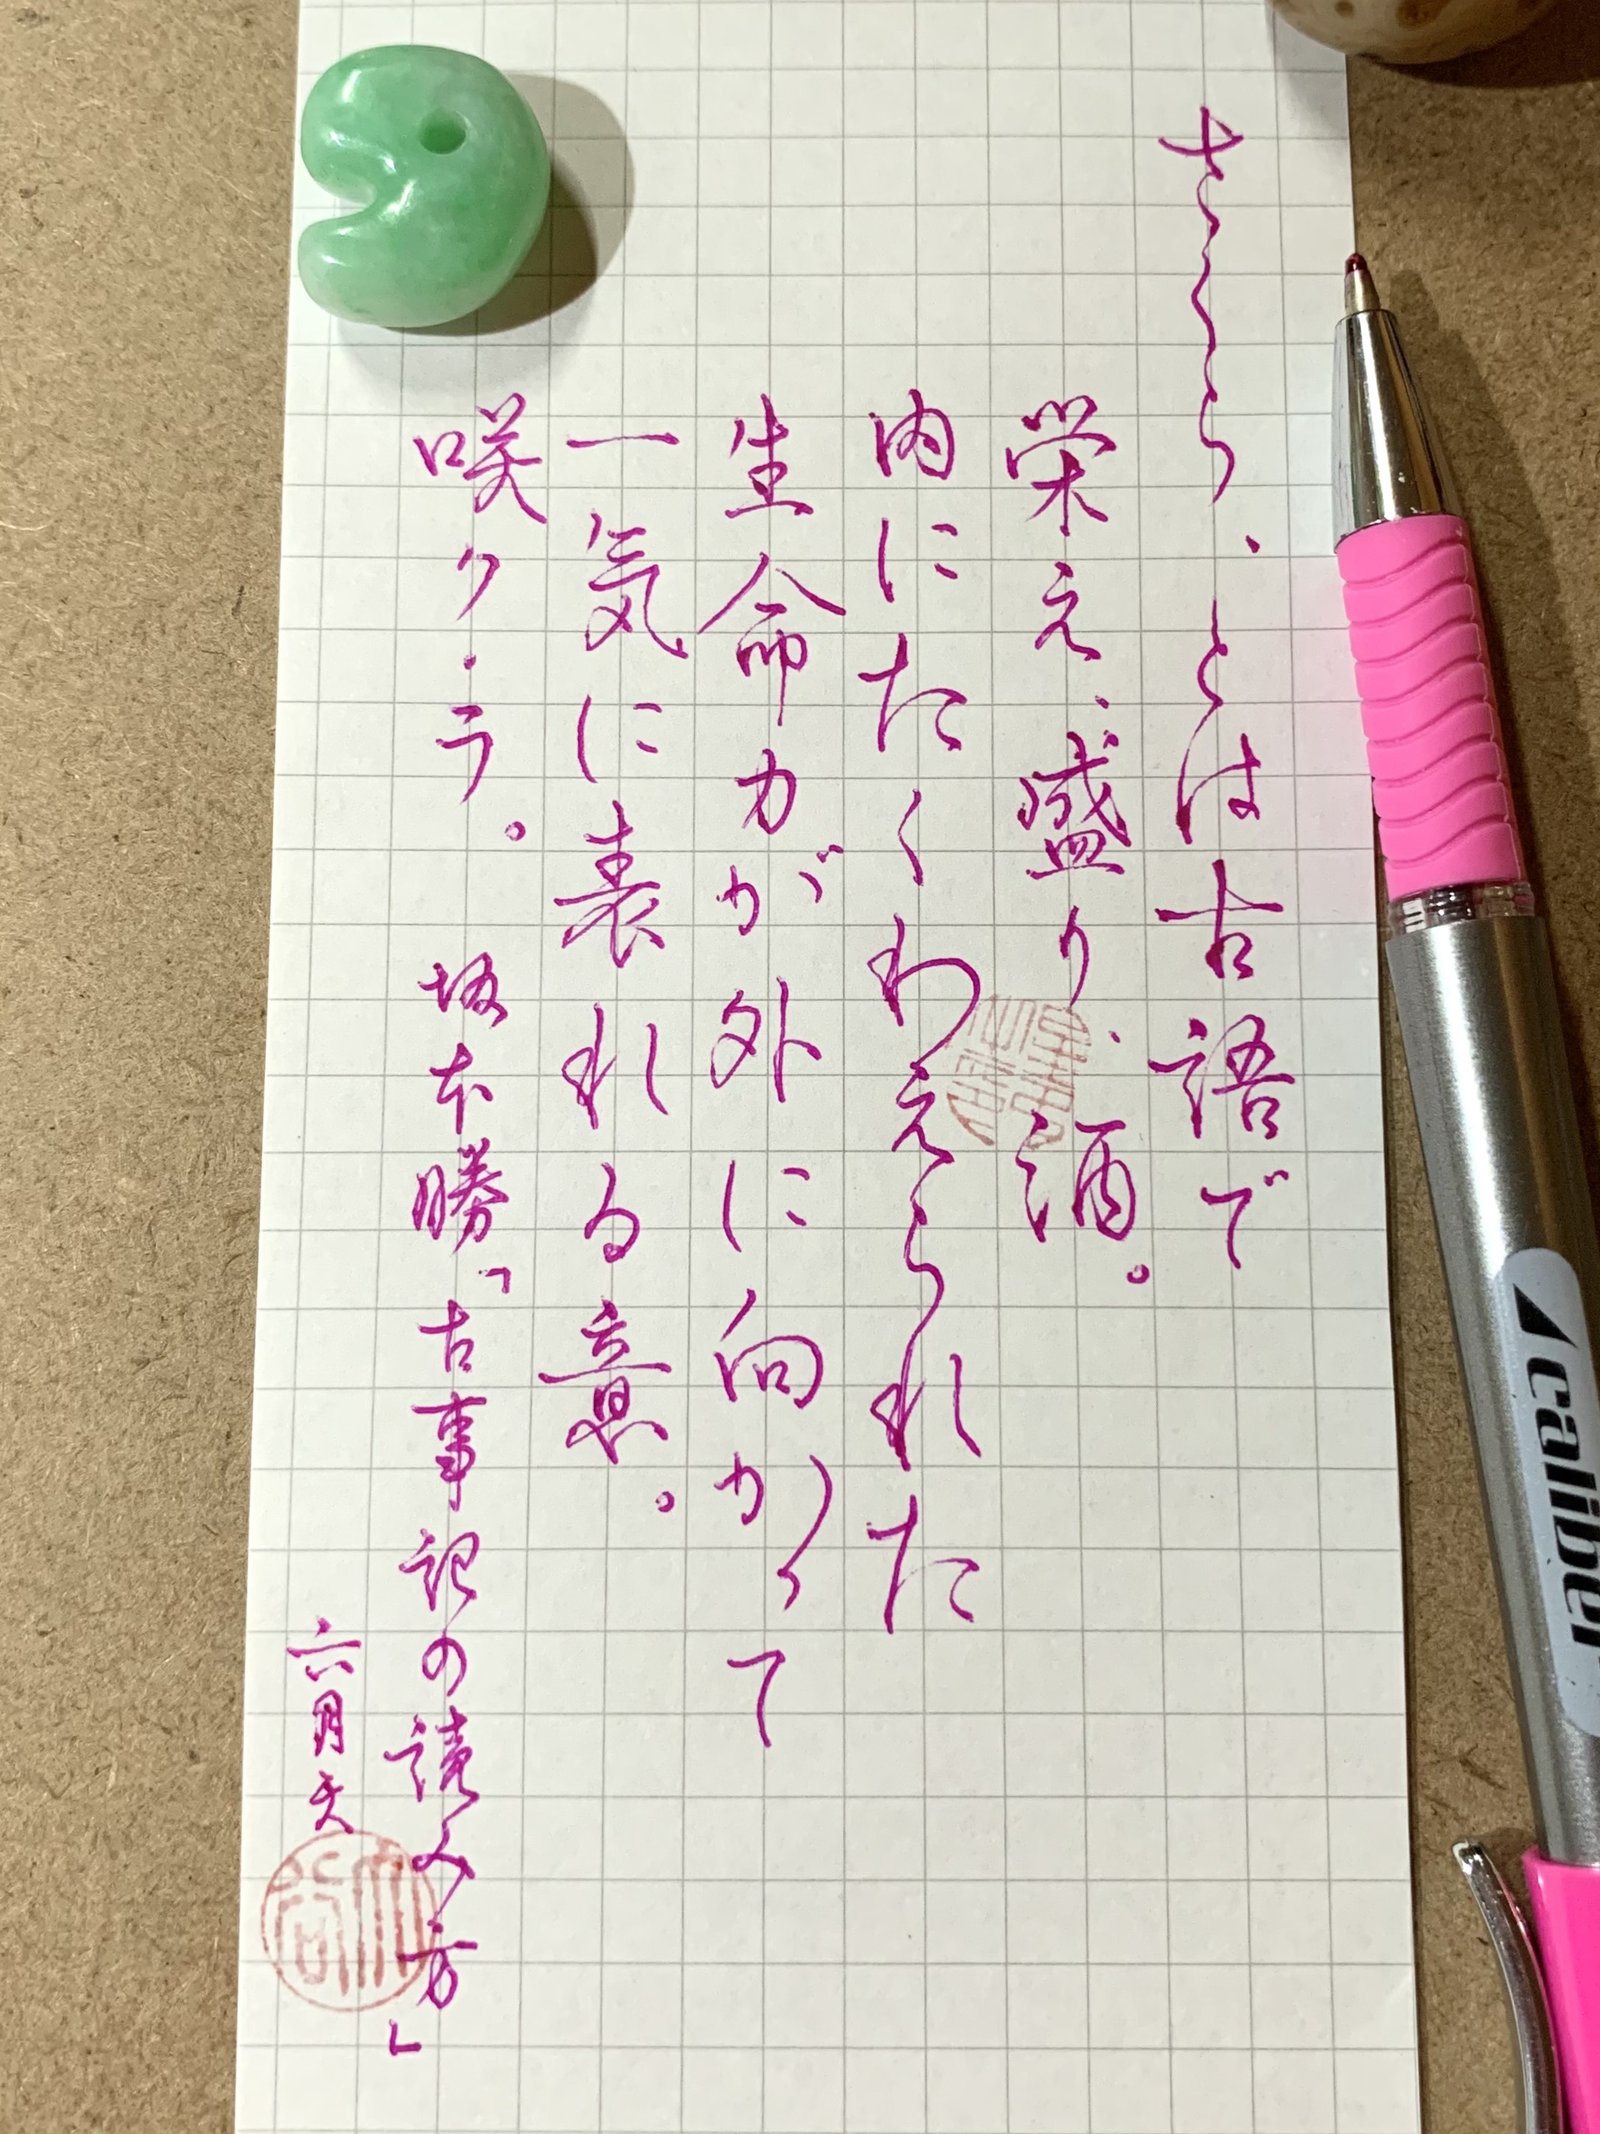 さくら、とは古語で
栄え、盛り、酒。
内にたくわえられた
生命力が外に向かって
一気に表れる意。
咲ク・ラ。 坂本勝「古事記の読み方」
六月天
caliber